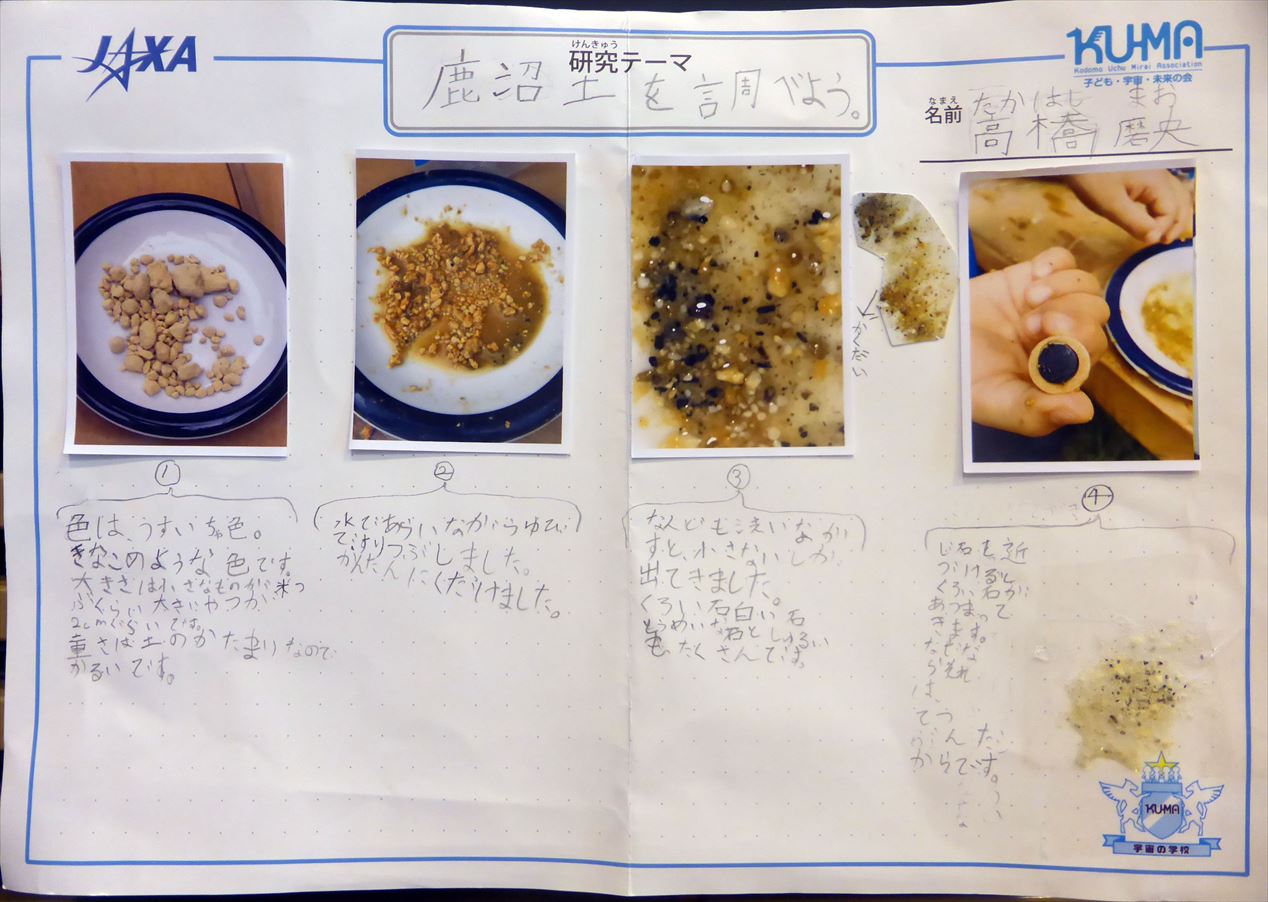 JAXA
けんきゅう
研究テーマ
鹿沼土を調べよう。
KU-MA
Kodomo Uchu Mirai Association
子ども・宇宙・未来の会
なまえ
名前
たかはし まお
高橋 磨央
かくだい
①
色は、うすいちゃ色。
きなこのような色です。
大きさは小さなものが米つ
ぶくらい大きいやつが
2cmぐらいです。
重さは土のかたまりなので
かるいです。
②
水であらいながらゆび
ですりつぶしました。
かんたんにくだけました。
③
なんども洗いなが
すと、小さないしが
出てきました。
くろい石白い石
とうめいな石としゅるい
もたくさんです。
④
じ石を近
づけると
くろい石が
あつまって
きます。
なぜな
らそれ
は、
てつ
からです。
KU-MA
宇宙の学校